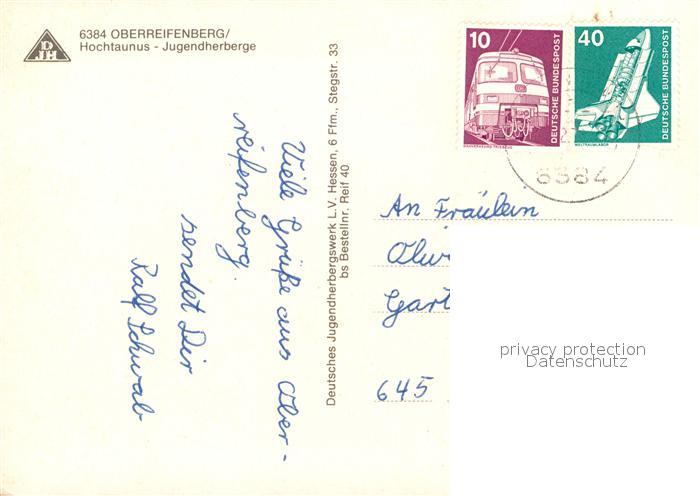 DJH
6384 OBERREIFENBERG/
Hochtaunus - Jugendherberge
Viele Grüße aus Ober-
reifenberg.
sendet Dir
Ralf Schwab
Deutsches Jugendherbergswerk L.V. Hessen, 6 Ffm., Stegstr. 33
bs Bestellnr. Reif 40
10
DEUTSCHE BUNDESPOST
40
DEUTSCHE BUNDESPOST
WELTRAUMLABOR
6384
An Fräulein
Gart
645
privacy protection
Datenschutz